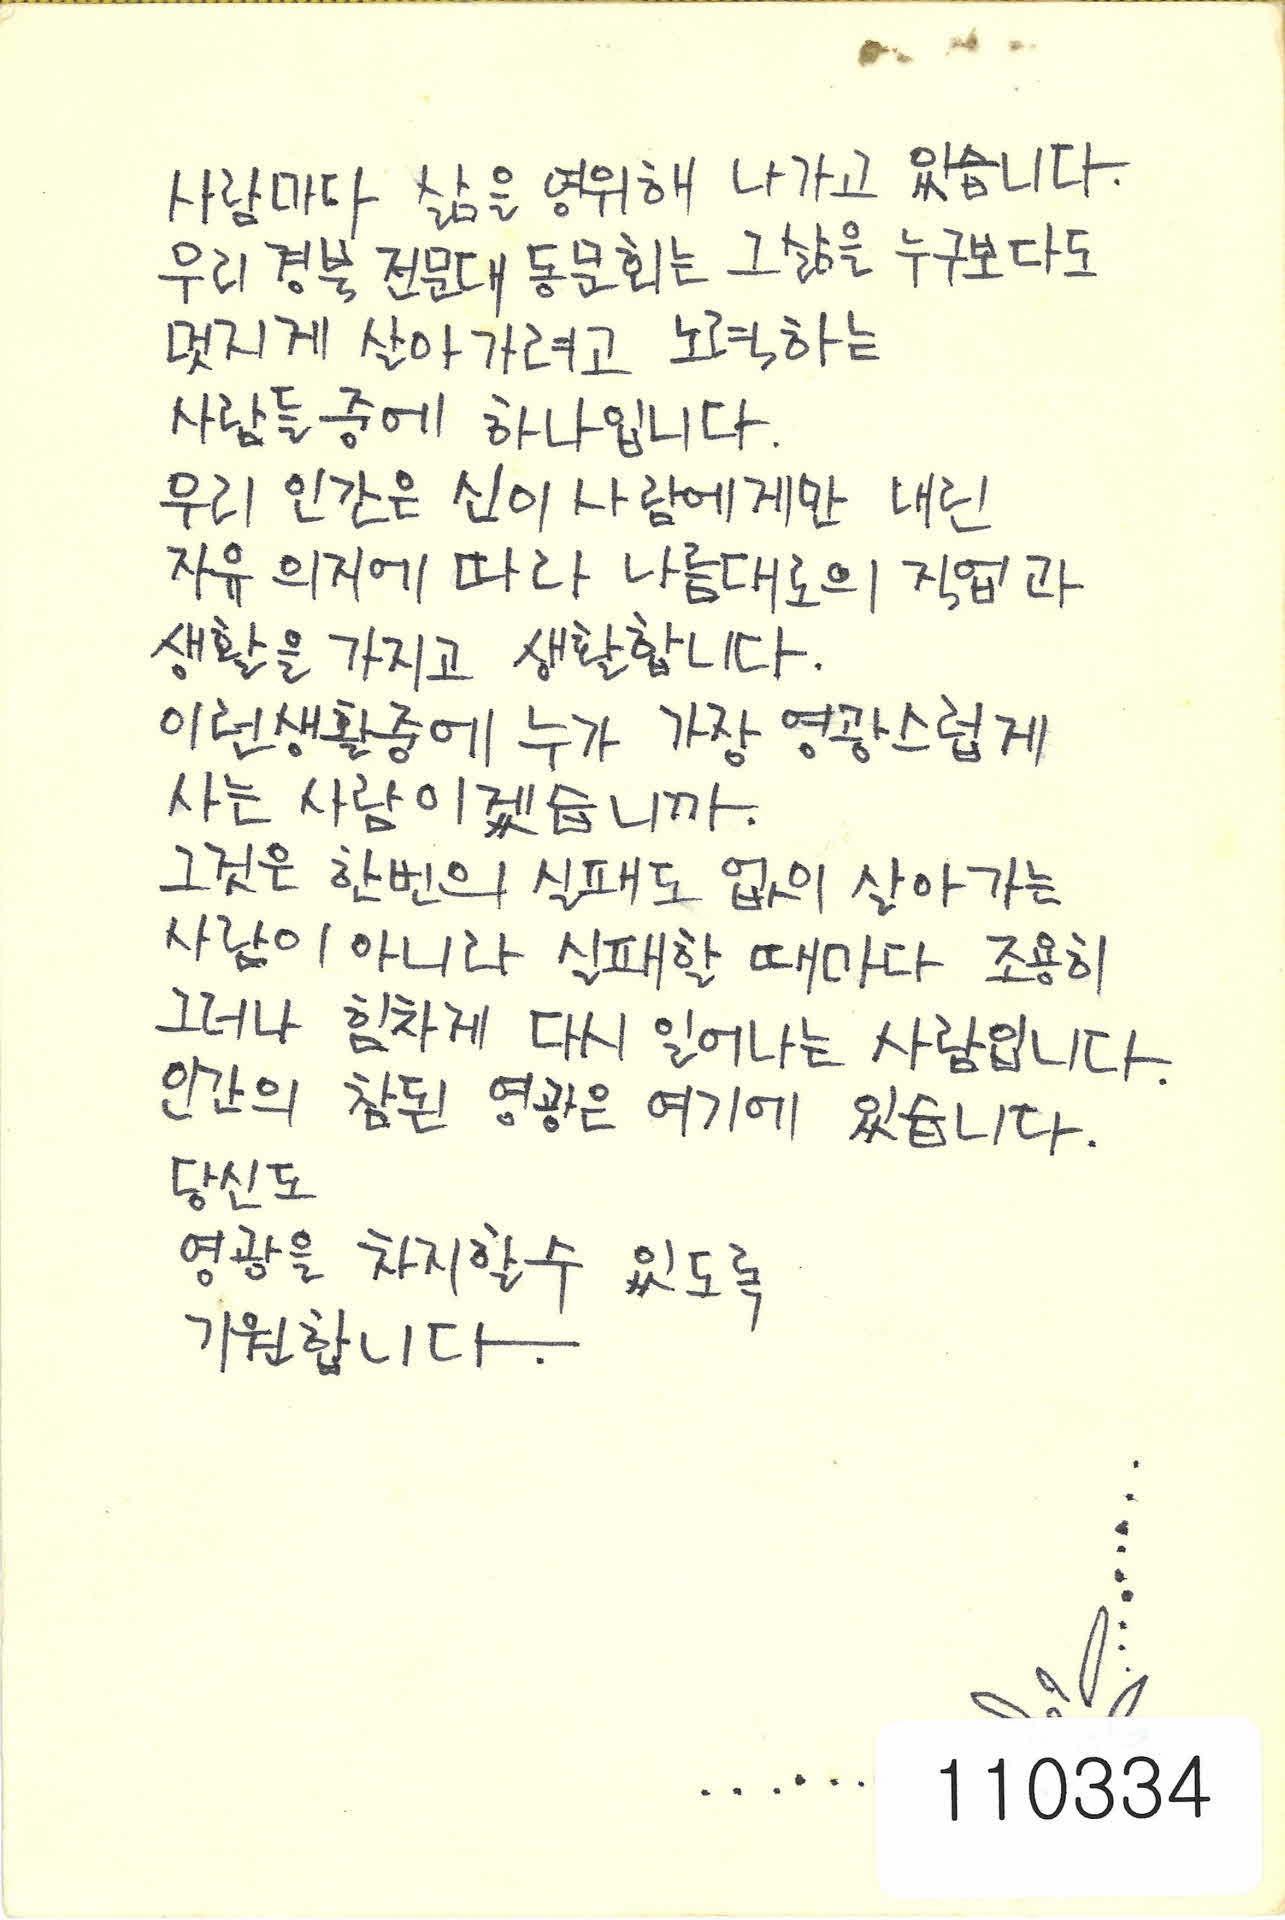 사람마다 삶을 영위해 나가고 있습니다.
우리 경북 전문대 동문회는 그삶을 누구보다도
멋지게 살아가려고 노력하는
사람들중에 하나입니다.
우리 인간은 신이 사람에게만 내린
자유 의지에 따라 나름대로의 직업과
생활을 가지고 생활합니다.
이런생활중에 누가 가장 영광스럽게
사는 사람이겠습니까.
그것은 한번의 실패도 없이 살아가는
사람이 아니라 실패할 때마다 조용히
그러나 힘차게 다시 일어나는 사람입니다.
인간의 참된 영광은 여기에 있습니다.
당신도
영광을 차지할수 있도록
기원합니다.
110334